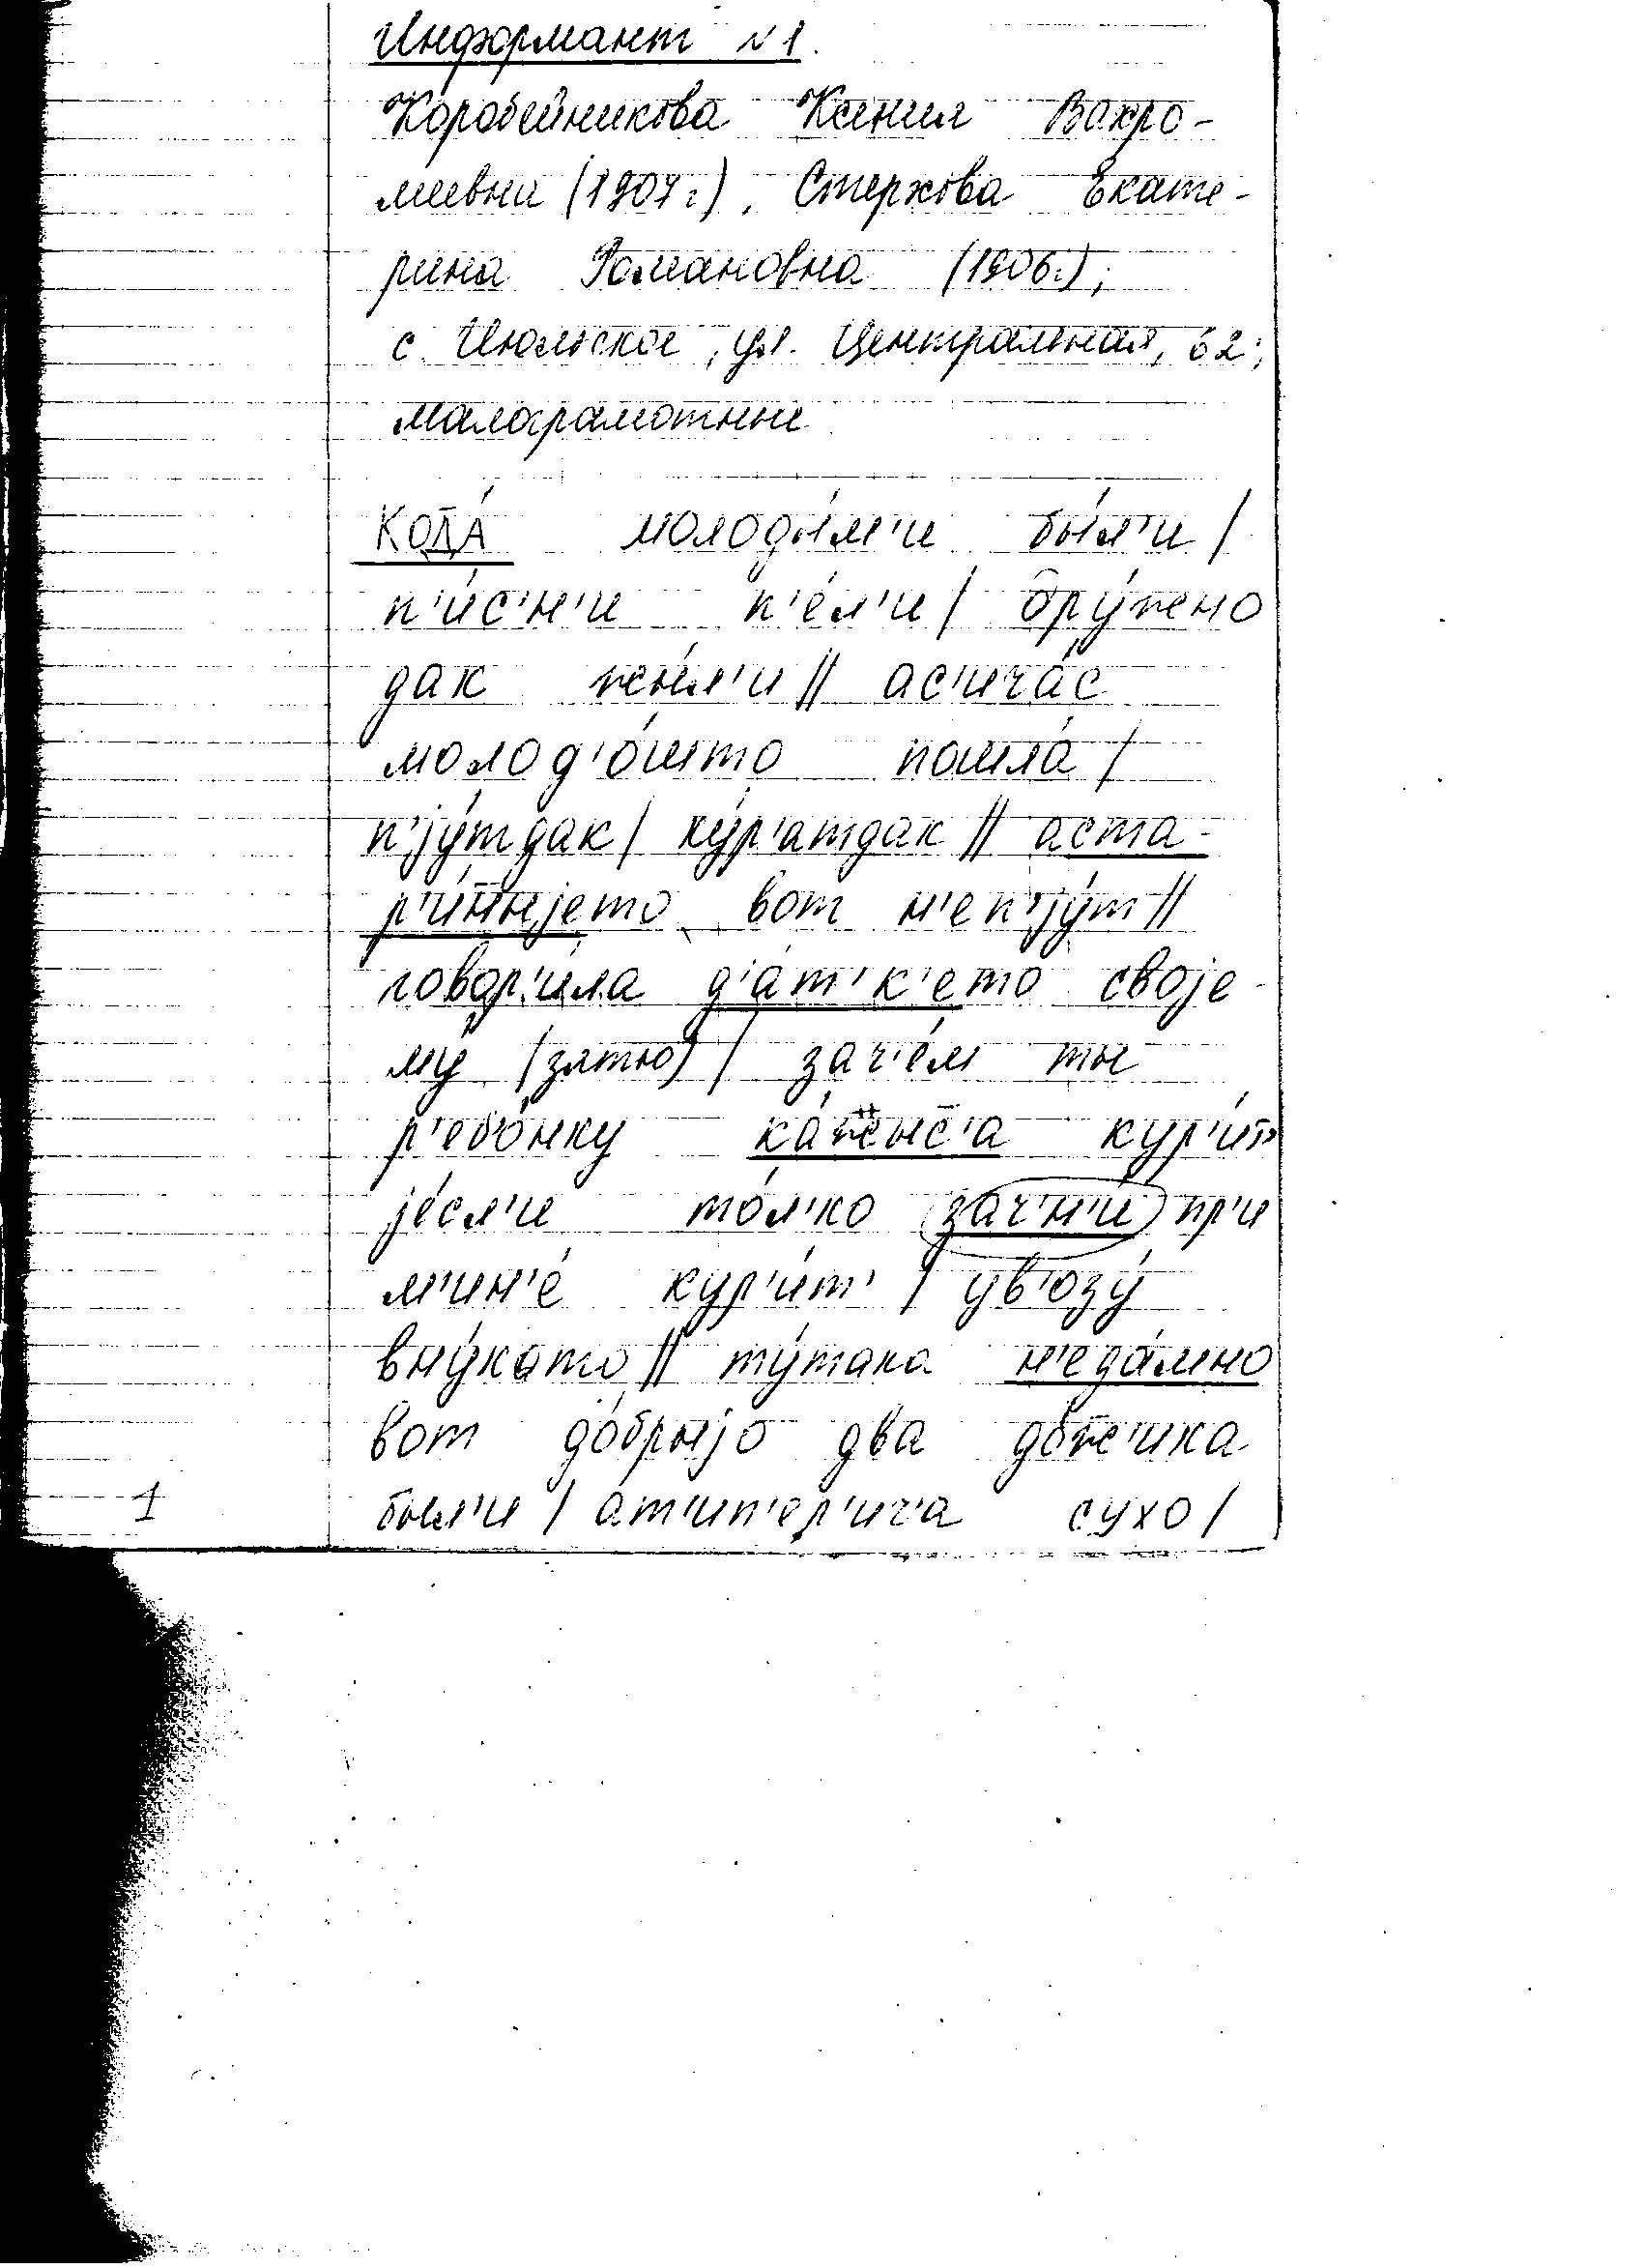 Информант N 1.
Коробейникова Ксения Вахро-
меевна (1907 г.), Стерхова Екате-
рина Романовна (1906 г.);
с. Июльское, ул. Центральная, 62;
малограмотные
кода́ молоды́м'и бы́л'и /
п'и́с'н'и п'е́л'и / дру́жно
дак жы́л'и // ас'ича́с
молод'о́што пошла́ /
п'jу́тдак / ку́р'атдак // аста-
р'и́нныjето вот н'еп'jу́т //
говор'и́ла д'а́т'к'ето своjе-
му́ (зятю) / зач'е́м ты
р'еб'о́нку ка́жыс'а кур'и́т'
jе́сл'и то́л'ко зач'н'и́ пр'и
м'ин'е́ кур'и́т' / ув'озу́
вну́като // ту́така н'еда́мно
вот до́брыjо два до́ж'ика
был'и / ат'ип'е́р'ич'а сухо /
1